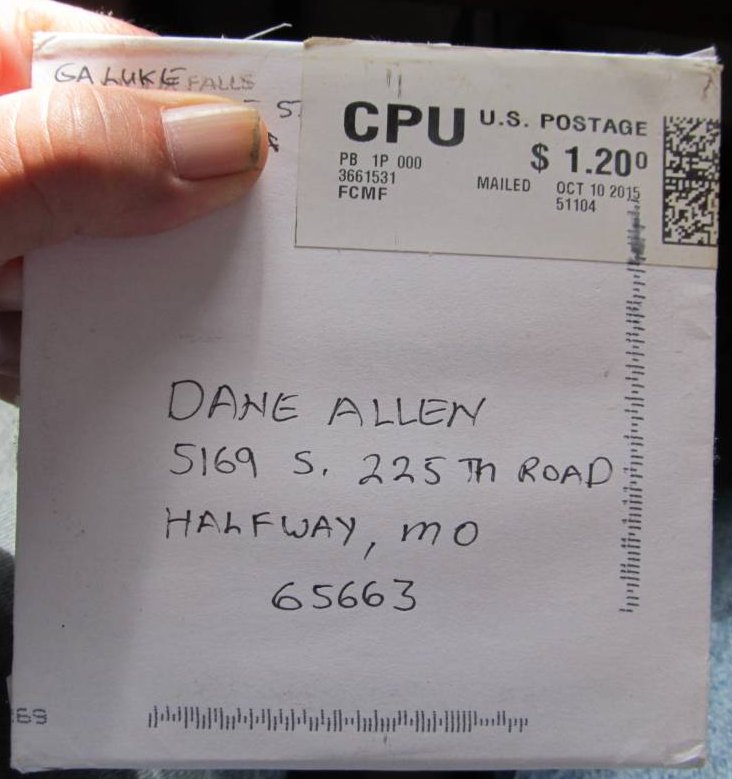 GALUKE FALLS
S.
CPU U.S. POSTAGE
$ 1.20⁰
PB 1P 000
3661531
FCMF
MAILED OCT 10 2015
51104
DANE ALLEN
5169 S. 225TH ROAD
HALFWAY, MO
65663
69